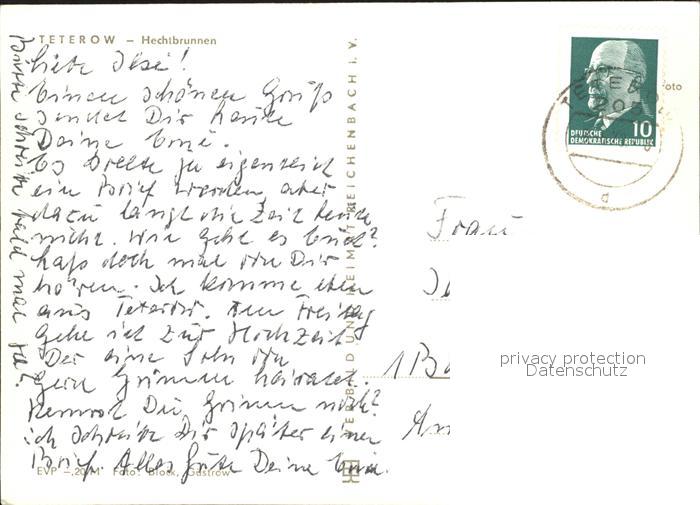 TETEROW – Hechtbrunnen
Liebe Ilse!
Einen schönen Gruß
sendet Dir heute
Deine Erni.
Es sollte ja eigentlich
ein Brief werden aber
dazu langt die Zeit heute
nicht. Wie geht es Euch?
Laß doch mal von Dir
hören. Ich komme eben
aus Teterow. Am Freitag
gehe ich zur Hochzeit
Der eine Sohn von
Grimm heiratet.
Kennst Du Grimm noch?
ich schreibe Dir später einen
Brief. Alles Gute Deine
Bitte schreibe bald mal ja?
EVP –,20 M Foto: Block, Güstrow
BILD UND HEIMAT REICHENBACH I. V.
10
DEUTSCHE
DEMOKRATISCHE REPUBLIK
TETEROW
205
a
Foto
Frau
1 B
privacy protection
Datenschutz